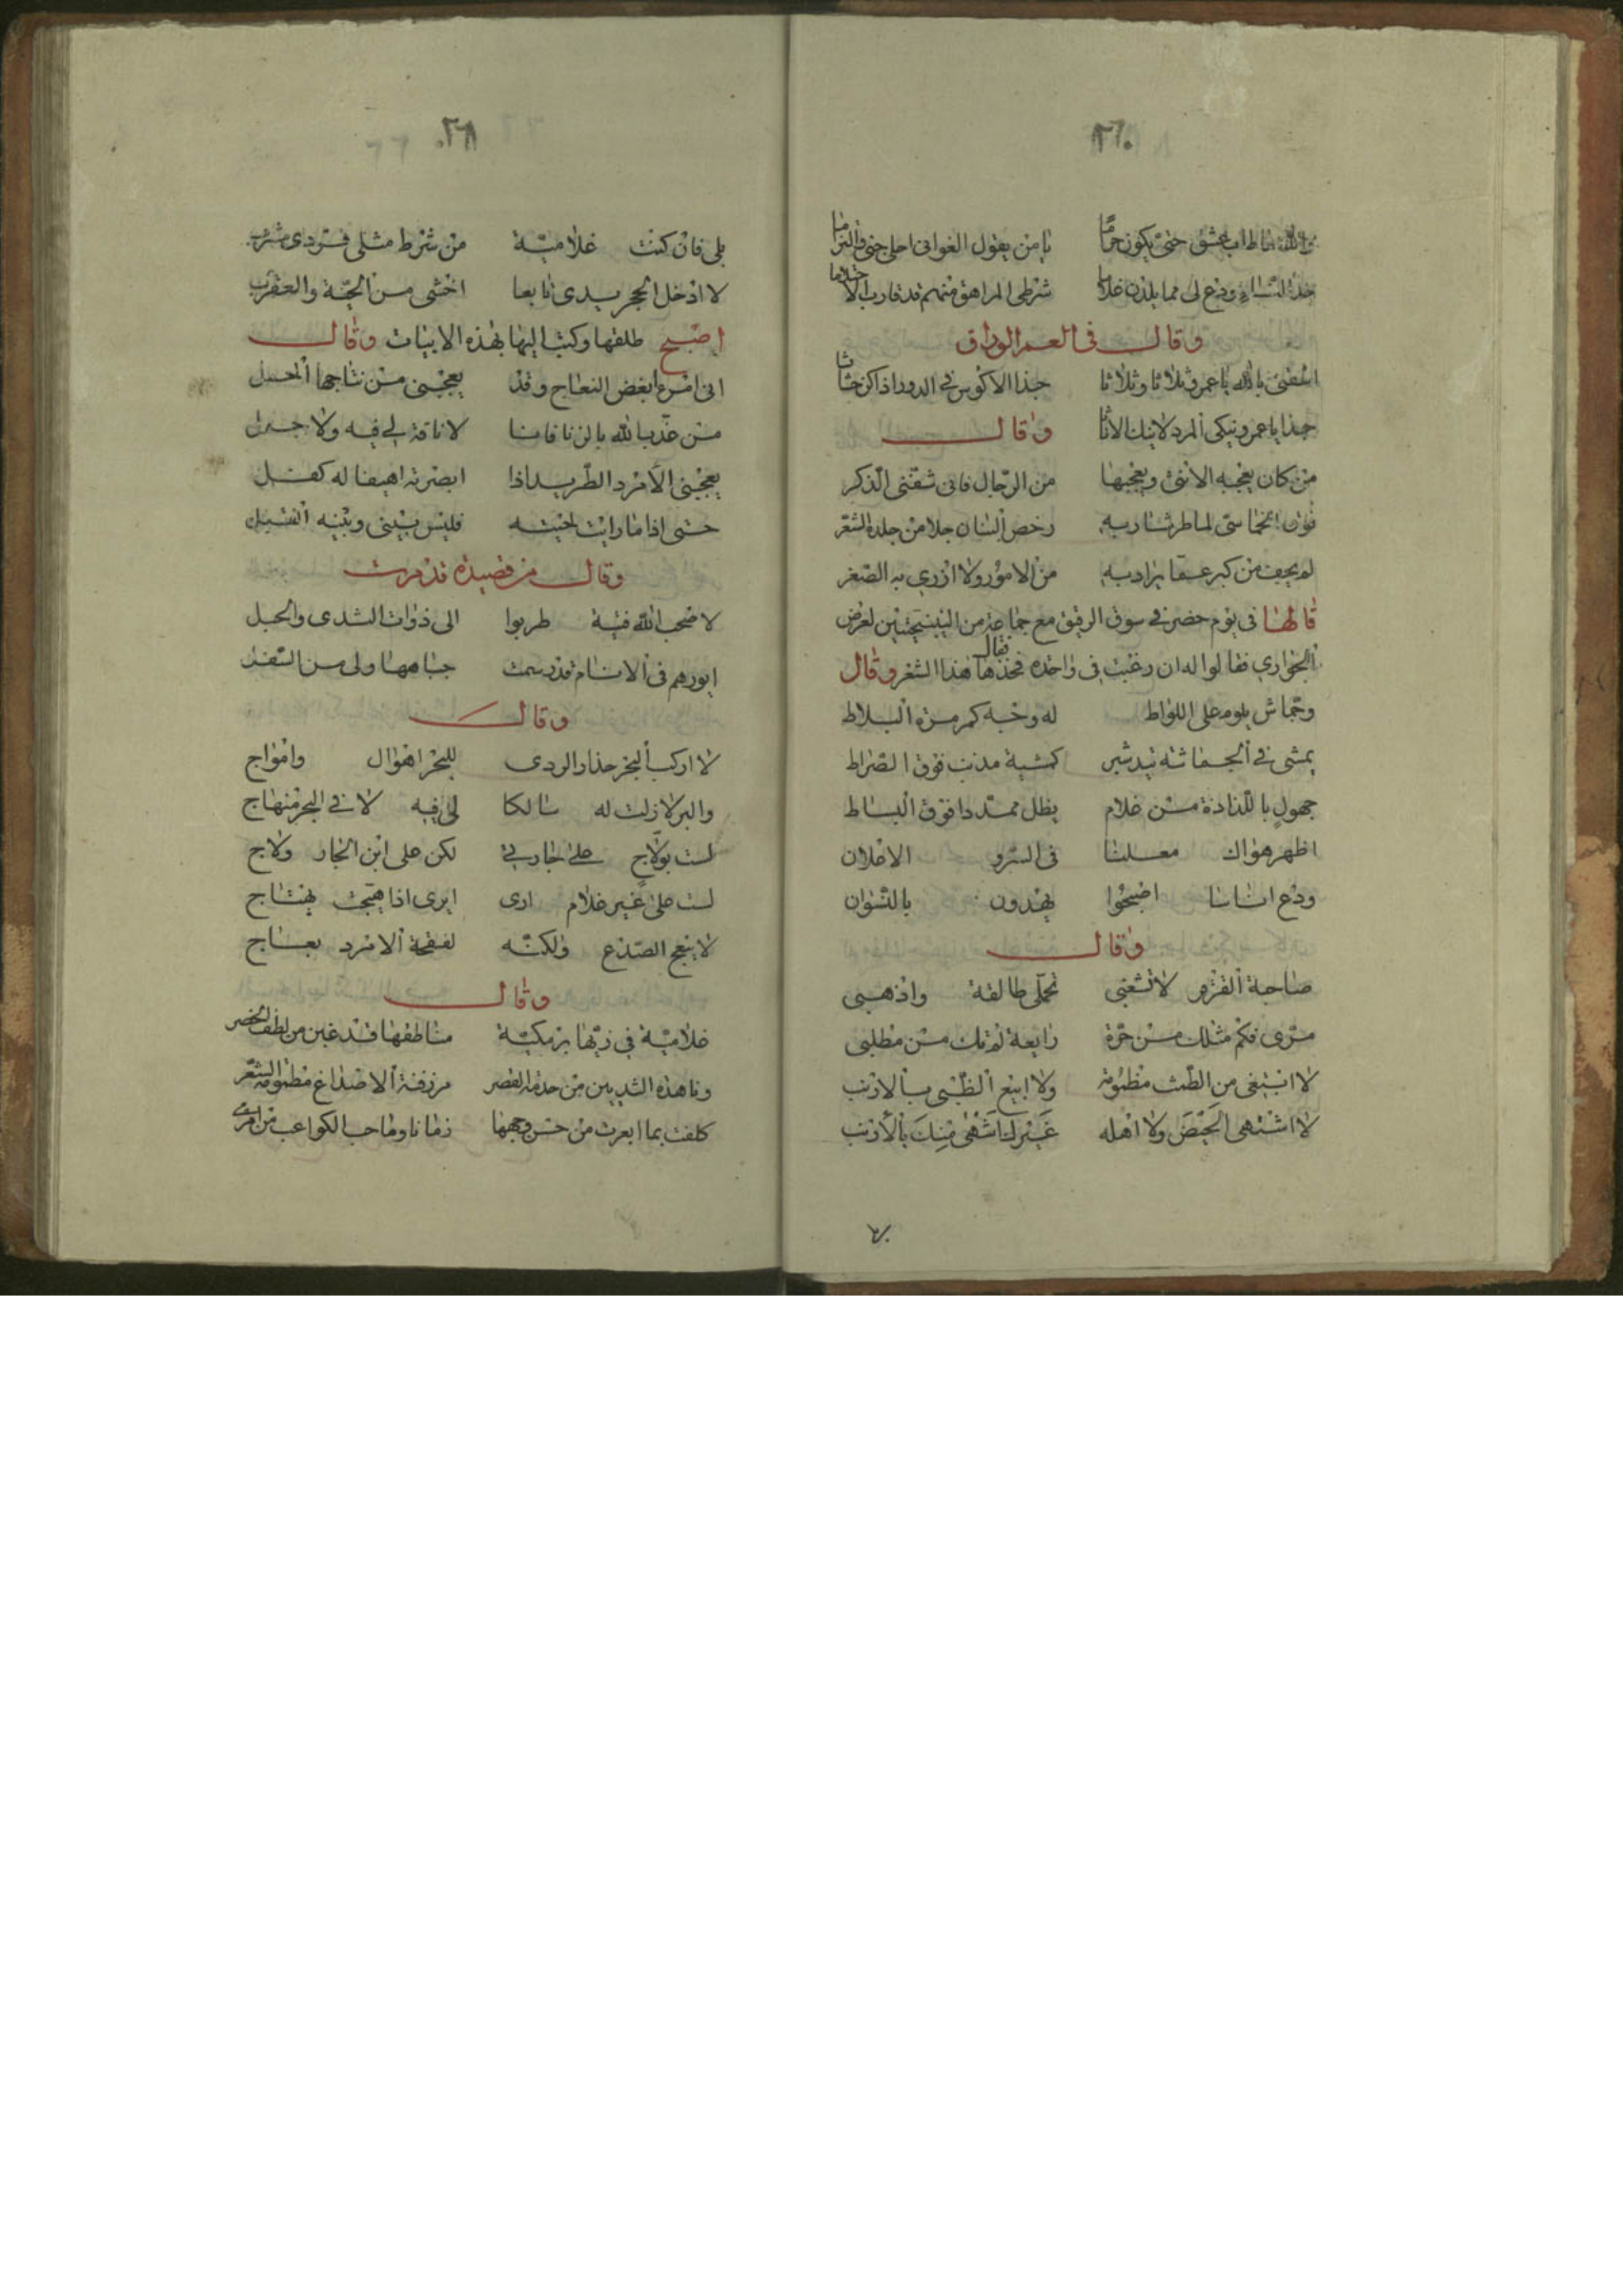 ٢٦٠
والله ما طاب عشق حتى يكون حراما يا من يقول الغوانى احلى جنى والتزاما
خذ النساء ودع لى مما يلدن غلاما شرطى المراهق منهم قد قارب الاحتلاما
وقال فى العمر الوراق
اسقنى بالله يا عمرو ثلاثا وثلاثا حبذا الاكوس فى الدور اذا كن حثاثا
حبذا يا عمرو نيكى المرد لا نيك الاناثا وقال
من كان يعجبه الانثى ويعجبها من الرجال فانى شفنى الذكر
فوق الخماسى لما طر شاربه رخص البنان خلا من جلده الشعر
لم يجف من كبر عما يراد به من الامور ولا ازرى به الصغر
قالها فى يوم حضر فى سوق الرقيق مع جماعة من لعرض
الجوارى فقالوا له ان رغبت فى واحدة فخذها فقال هذا الشعر وقال
وجماش يلوم على اللواط له وجه كمرمرة البلاط
يمشى فى كمشية مذنب فوق الصراط
جهول باللذاذة من غلام يظل ممددا فوق البساط
اظهر هواك معلنا فى السر و الاعلان
ودع اناسا اصبحوا يهذون بالنسوان
وقال
صاحبة القرقر لا تشغبى تحملى طالقة واذهبى
مرى فكم مثلك من حرة رايعة لم تك من مطلبى
لا ابتغى من الطمث مطمومة ولا ابيع الظبى بالارنب
لا اشتهى الحيض ولا اهله غيرك اشهى منك بالارنب
٢٦١
بلى فان كنت غلامية من شرط مثلى فردى مشربى
لا ادخل الجحر يدى تابعا اخشى من الحية والعقرب
اصبح طلقها وكتب اليها بهذه الابيات وقال
انى امرء ابغض النعاج وقد يعجبنى من نتاجها الحمل
من عذب الله بالزنا فانا لا ناقة لى فيه ولا جمل
يعجبنى الامرد الطرير اذا ابصرته اهيفا له كفل
حتى اذا ما رايت لحيته فليس بينى وبينه
وقال من قصيدة قد مرت
لا صحب الله فتية طربوا الى ذوات الثدى والحبل
ايورهم فى الانام قد رسمت
وقال
لا اركب البحر حذار الردى للبحر اهوال وامواج
والبر لا زلت له سالكا لى فيه لا فى البحر منهاج
لست بولاج على جارتى لكن على ابن الجار ولاج
لست على غير غلام ارى ايرى اذا هيجت يهتاج
لا ينعج الصدع ولكنه لفقحة الامرد بعاج
وقال
غلامية فى زيها برمكية مناطقها قد غبن من لطف الخصر
وناهدة الثديين من خدم القصر مزرفنة الاصداغ مطمومة الشعر
كلفت بما ابصرت من حسن وجهها زمانا وما حب الكواعب من امرى